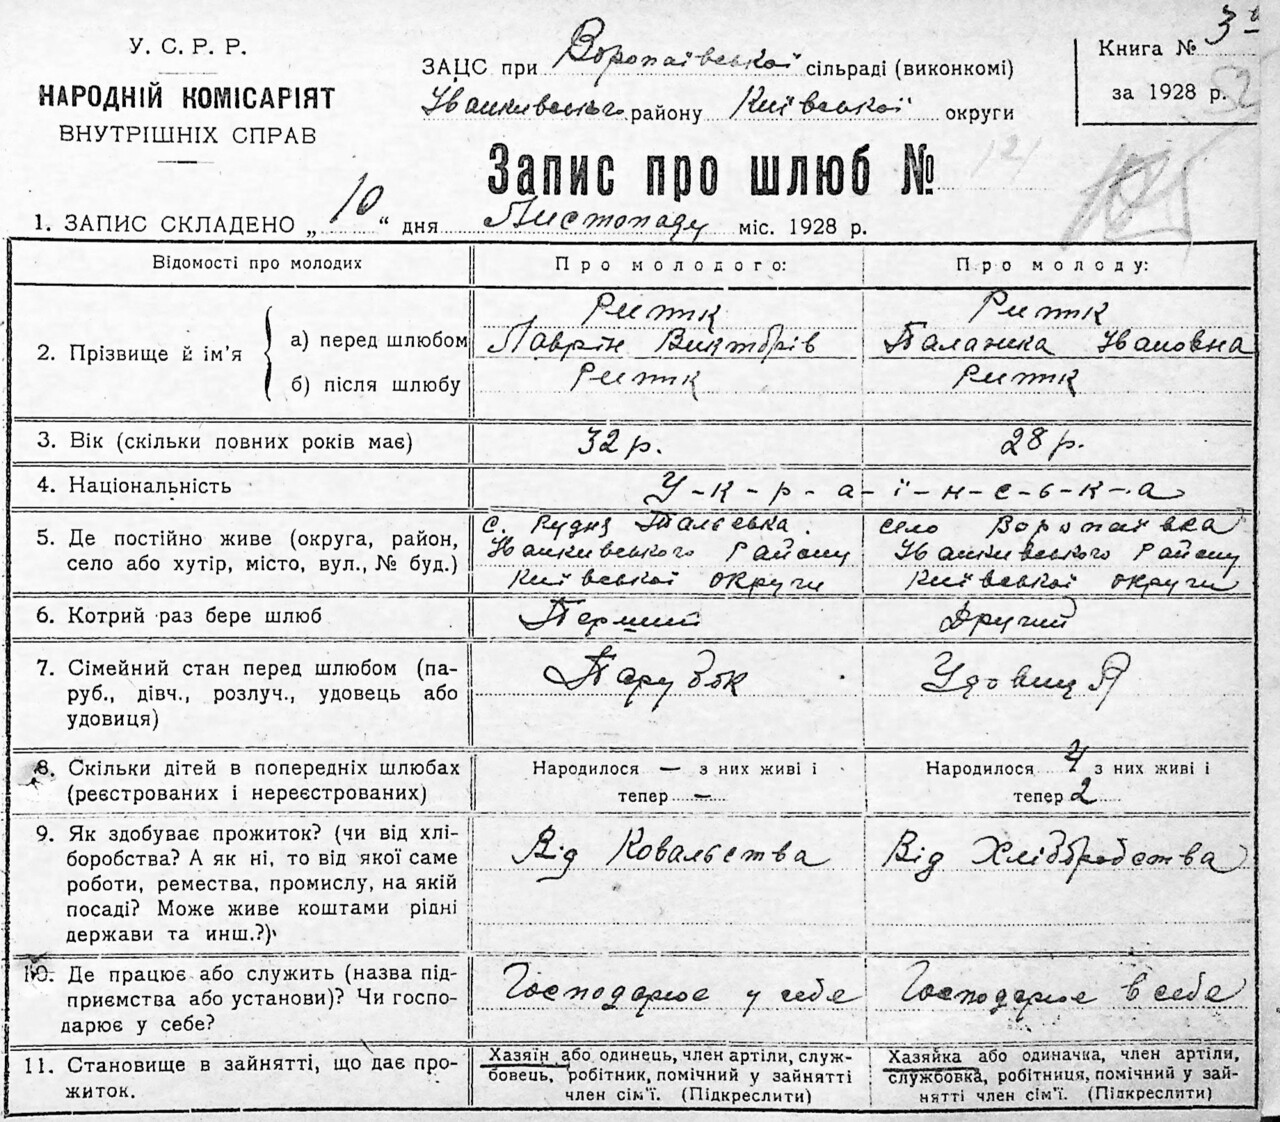 У. С. Р. Р.
НАРОДНІЙ КОМІСАРІЯТ
ВНУТРІШНІХ СПРАВ
ЗАЦС при Воропаївської сільраді (виконкомі)
Іванківського району Київської округи
Книга № 3
за 1928 р.
Запис про шлюб № 121
1. ЗАПИС СКЛАДЕНО „ 10 “ дня Листопаду міс. 1928 р.
Відомості про молодих
Про молодого:
Про молоду:
2. Прізвище й ім’я
а) перед шлюбом
б) після шлюбу
Ритк
Лаврін Викторів
Ритк
Ритк
Палажка Івановна
Ритк
3. Вік (скільки повних років має)
32 р.
28 р.
4. Національність
У-к-р-а-ї-н-с-ь-к-а
5. Де постійно живе (округа, район,
село або хутір, місто, вул., № буд.)
с. Рудня Тальська
Іванківського Району
Київської округи
село Воропаївка
Іванківського Району
Київської округи
6. Котрий раз бере шлюб
Перший
Другий
7. Сімейний стан перед шлюбом (па-
руб., дівч., розлуч., удовець або
удовиця)
Парубок
Удовиця
8. Скільки дітей в попередніх шлюбах
(реєстрованих і нереєстрованих)
Народилося — з них живі і
тепер —
Народилося 4 з них живі і
тепер 2
9. Як здобуває прожиток? (чи від хлі-
боробства? А як ні, то від якої саме
роботи, ремества, промислу, на якій
посаді? Може живе коштами рідні
держави та инш.?)
Від Ковальства
Від Хліборобства
10. Де працює або служить (назва під-
приємства або установи)? Чи госпо-
дарює у себе?
Господарює у себе
Господарює в себе
11. Становище в зайнятті, що дає про-
житок.
Хазяїн або одинець, член артіли, служ-
бовець, робітник, помічний у зайнятті
член сім’ї. (Підкреслити)
Хазяйка або одиначка, член артіли,
службовка, робітниця, помічний у зай-
нятті член сім’ї. (Підкреслити)